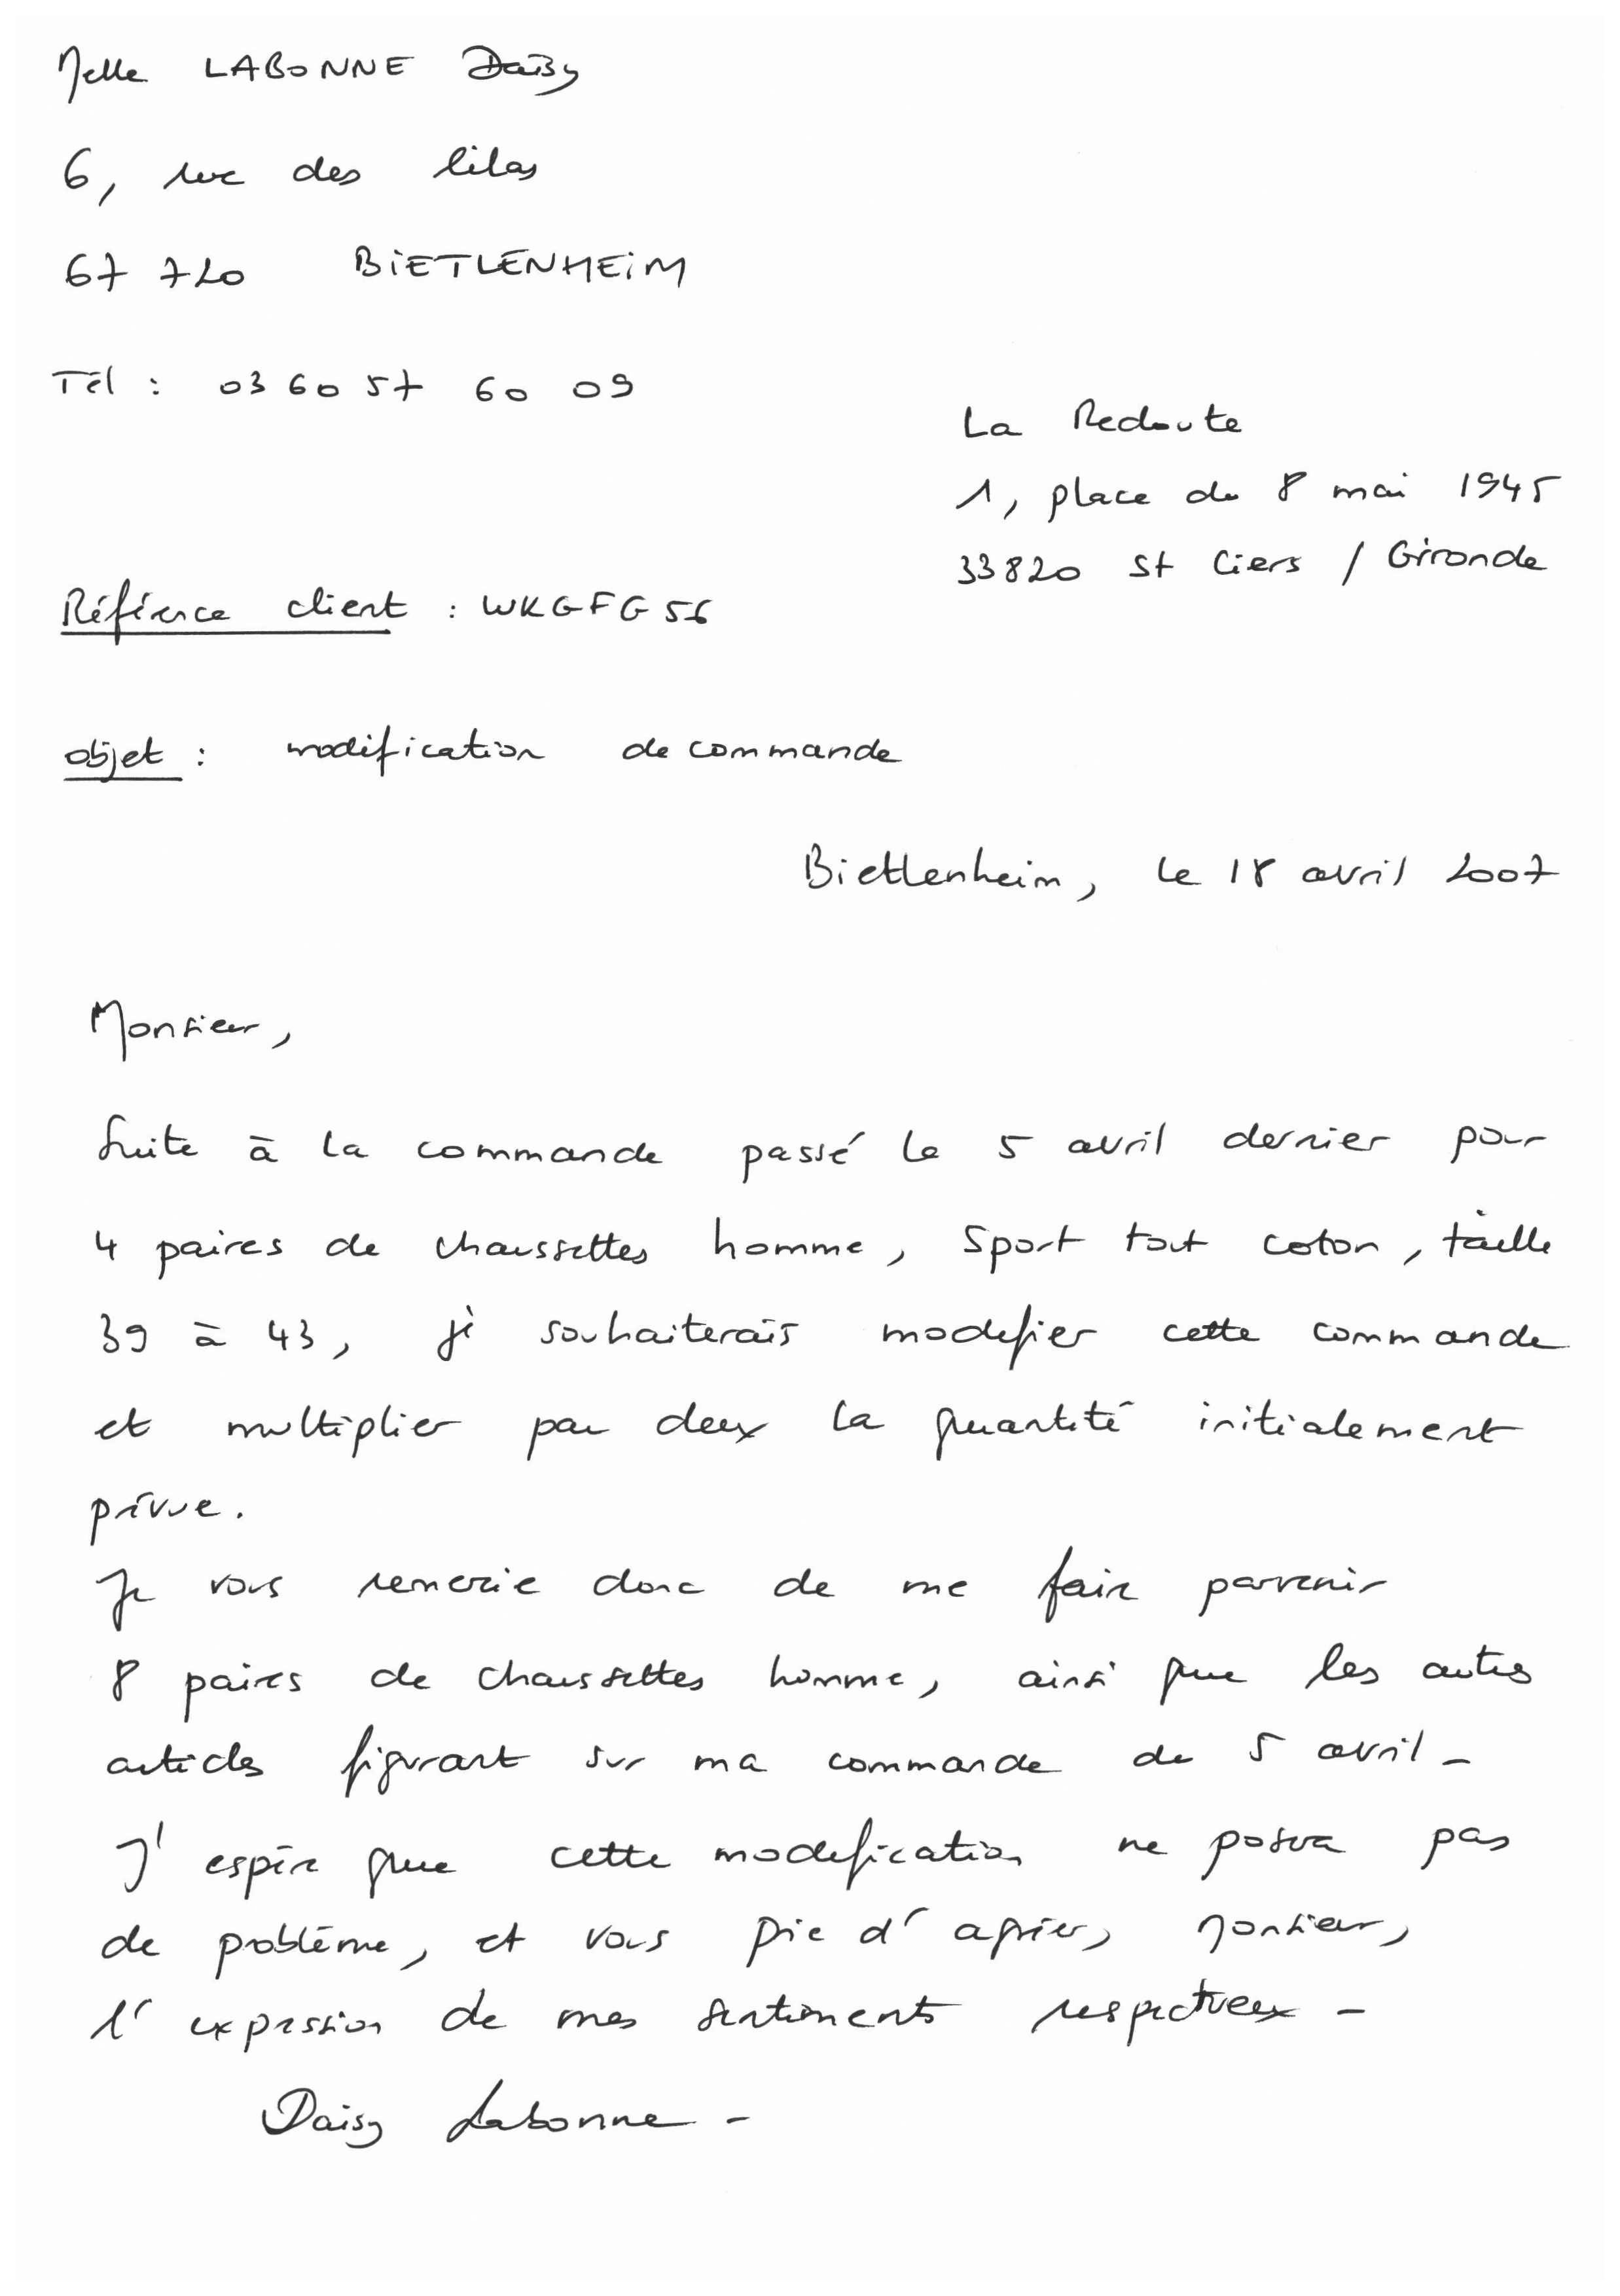 Melle LABONNE Daisy
6, rue des lilas
67 720 BIETLENHEIM
Tél : 03 60 57 60 09
La Redoute
1, place du 8 mai 1945
33820 St Ciers / Gironde
Référence client : WKGFG56
objet : modification de commande
Bietlenheim, le 18 avril 2007
Monsieur,
Suite à la commande passé le 5 avril dernier pour
4 paires de chaussettes homme, Sport tout coton, taille
39 à 43, je souhaiterais modifier cette commande
et multiplier par deux la quantité initialement
prévue.
Je vous remercie donc de me faire parvenir
8 paires de chaussettes homme, ainsi que les autres
articles figurant sur ma commande du 5 avril -
J'espère que cette modification ne posera pas
de problème, et vous prie d'agréer, Monsieur,
l'expression de mes sentiments respectueux -
Daisy Labonne -